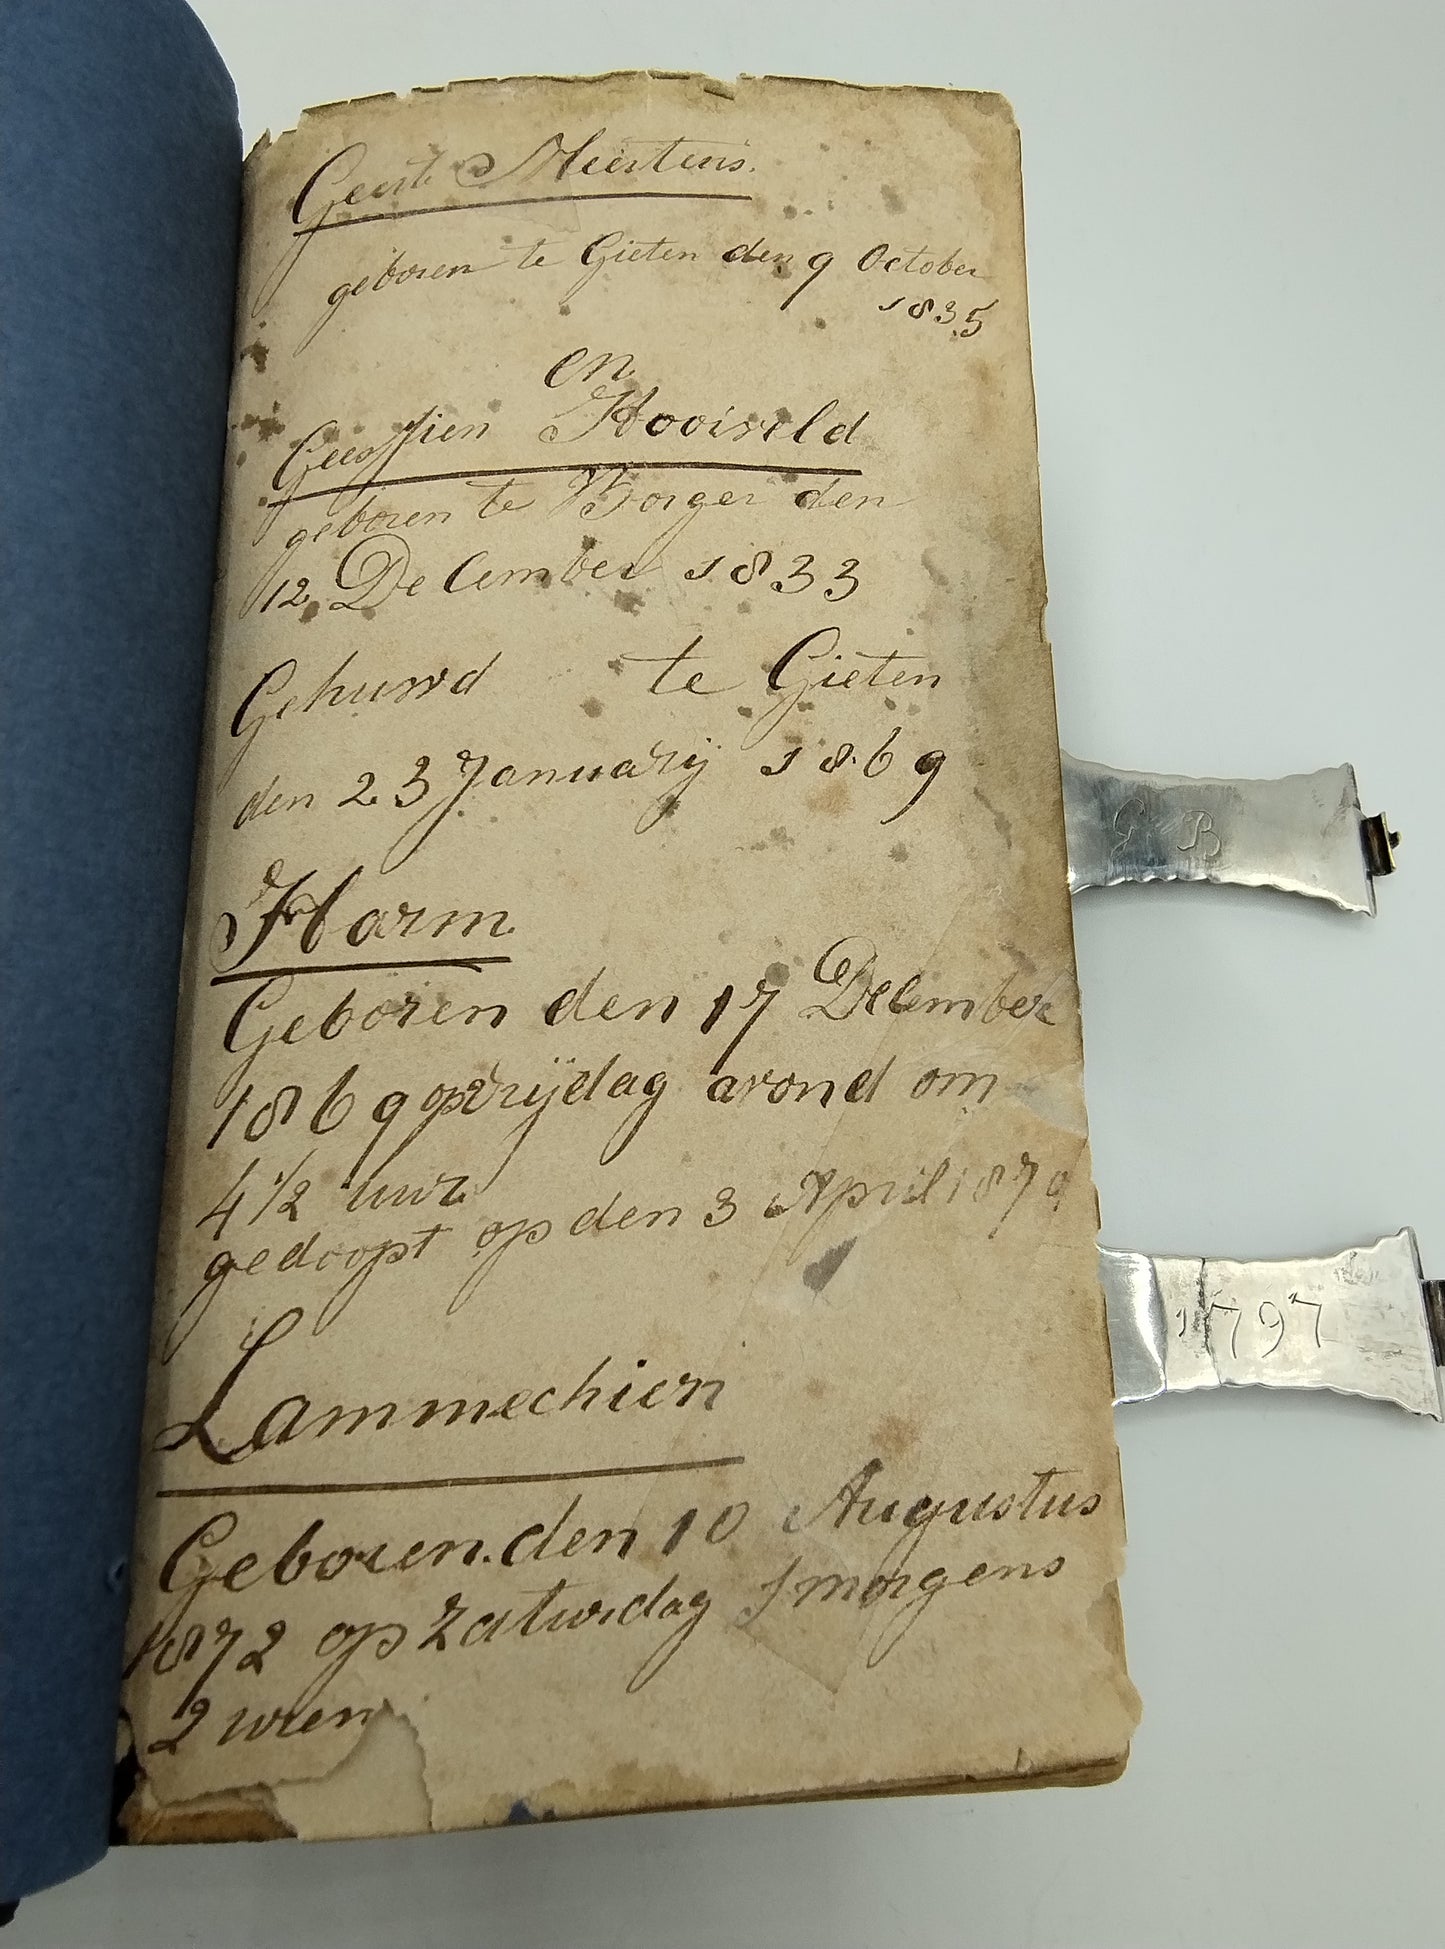 Geert Meertens.
geboren te Gieten den 9 October
1835
en
Geessien Hooiveld
geboren te Borger den
12 December 1833
Gehuwd te Gieten
den 23 January 1869
Harm
Geboren den 17 December
1869 op vrijdag avond om
4 1/2 uur
gedoopt op den 3 April 1870
Lammechien
Geboren. den 10 Augustus
1872 op zaturdag smorgens
2 uren
G B
1797